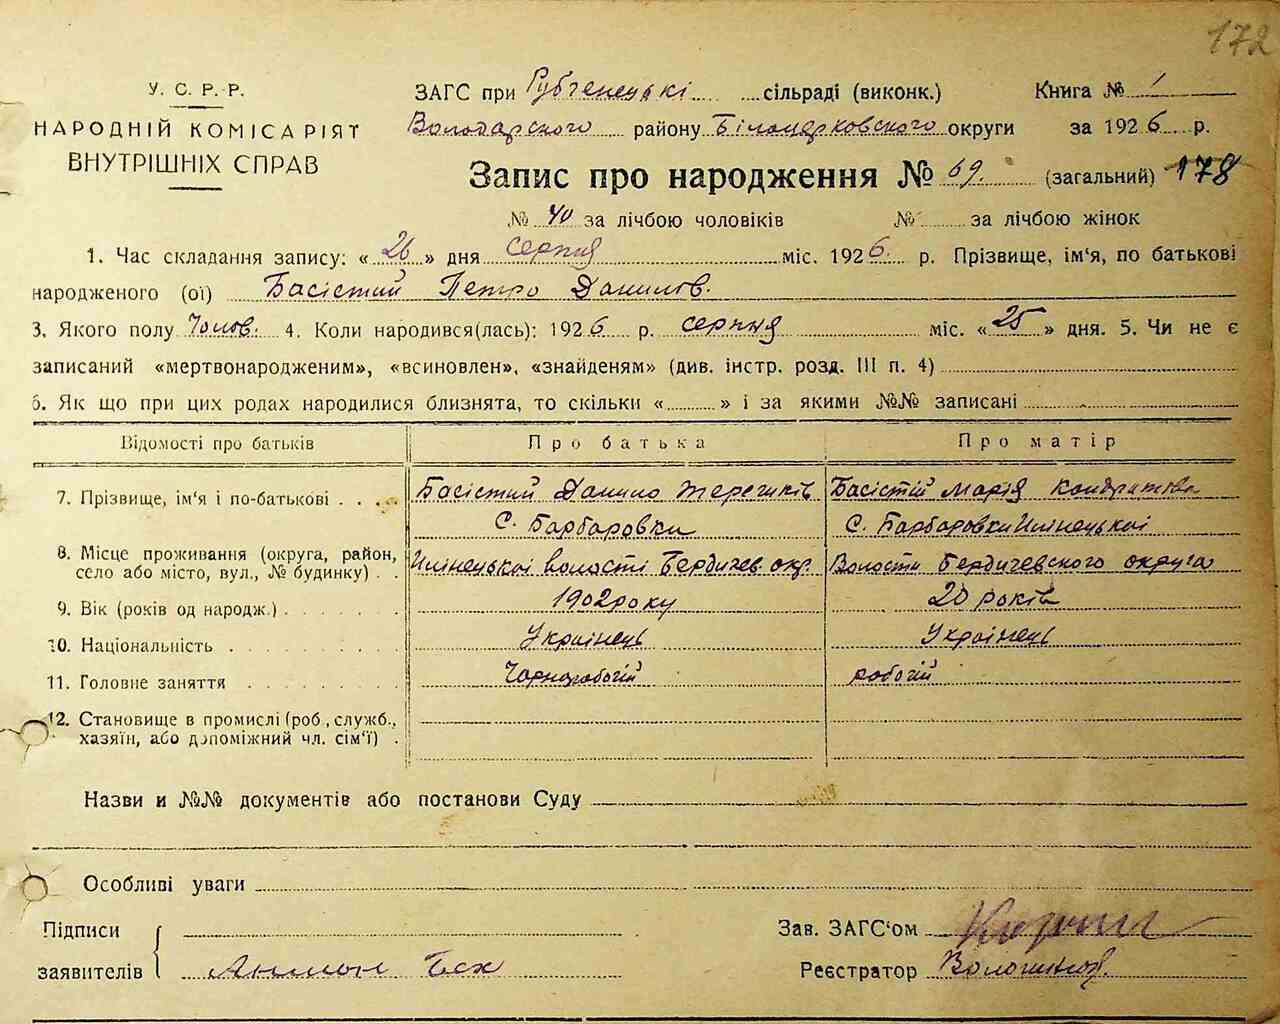 172
У. С. Р. Р.
НАРОДНІЙ КОМІСАРІЯТ
ВНУТРІШНІХ СПРАВ
ЗАГС при Рубченецькі сільраді (виконк.) Книга № 1
Володарского району Білоцерковского округи за 1926 р.
Запис про народження № 69. (загальний) 178
№ 40 за лічбою чоловіків № за лічбою жінок
1. Час складання запису: «26» дня серпня міс. 1926 р. Прізвище, ім'я, по батькові
народженого (ої) Басістий Петро Данилов.
3. Якого полу Чолов. 4. Коли народився(лась): 1926 р. серпня міс. «25» дня. 5. Чи не є
записаний «мертвонародженим», «всиновлен», «знайденям» (див. інстр. розд. III п. 4)
6. Як що при цих родах народилися близнята, то скільки « » і за якими №№ записані
Відомості про батьків Про батька Про матір
7. Прізвище, ім'я і по-батькові Басістий Данило Басістій Марія
С. Барбаровки С. Барбаровки Илінецькоі
8. Місце проживання (округа, район,
село або місто, вул., № будинку) Илінецькоі волості Бердичев окр. Волости Бердичевского округа
9. Вік (років од народж.) 1902 року 20 років
10. Національність Украінець Украінець
11. Головне заняття Чорноробочій робочій
12. Становище в промислі (роб., служб.,
хазяїн, або допоміжний чл. сім'ї)
Назви и №№ документів або постанови Суду
Особливі уваги
Підписи
заявителів
Зав. ЗАГС'ом
Реєстратор